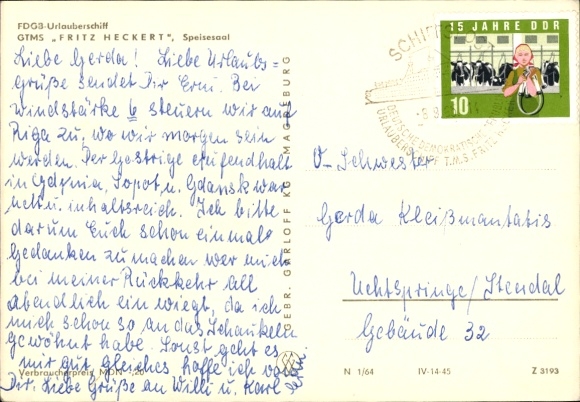 FDGB-Urlauberschiff
GTMS „FRITZ HECKERT", Speisesaal
Liebe Gerda! Liebe Urlaubs=
grüße sendet Dir Erni. Bei
Windstärke 6 steuern wir auf
Riga zu, wo wir morgen sein
werden. Der Gestrige Aufendhalt
in Gdynia, Sopot u. Gdansk war
nett u. inhaltsreich. Ich bitte
darum Euch schon einmal
Gedanken zu machen wer mich
bei meiner Rückkehr all
abendlich ein wiegt, da ich
mich schon so an das Schaukeln
gewöhnt habe. Sonst geht es
mir gut gleiches hoffe ich von
Dir. Liebe Grüße an Willi u. Karl
Verbraucherpreis MDN -,20
GEBR. GARLOFF KG MAGDEBURG
15 JAHRE DDR
10
SCHIFFSPOST
DEUTSCHE DEMOKRATISCHE
URLAUBERSCHIFF T.M.S.
O-Schwester
Gerda Kleißmantatis
Uchtspringe/Stendal
Gebäude 32
N 1/64
IV-14-45
Z 3193